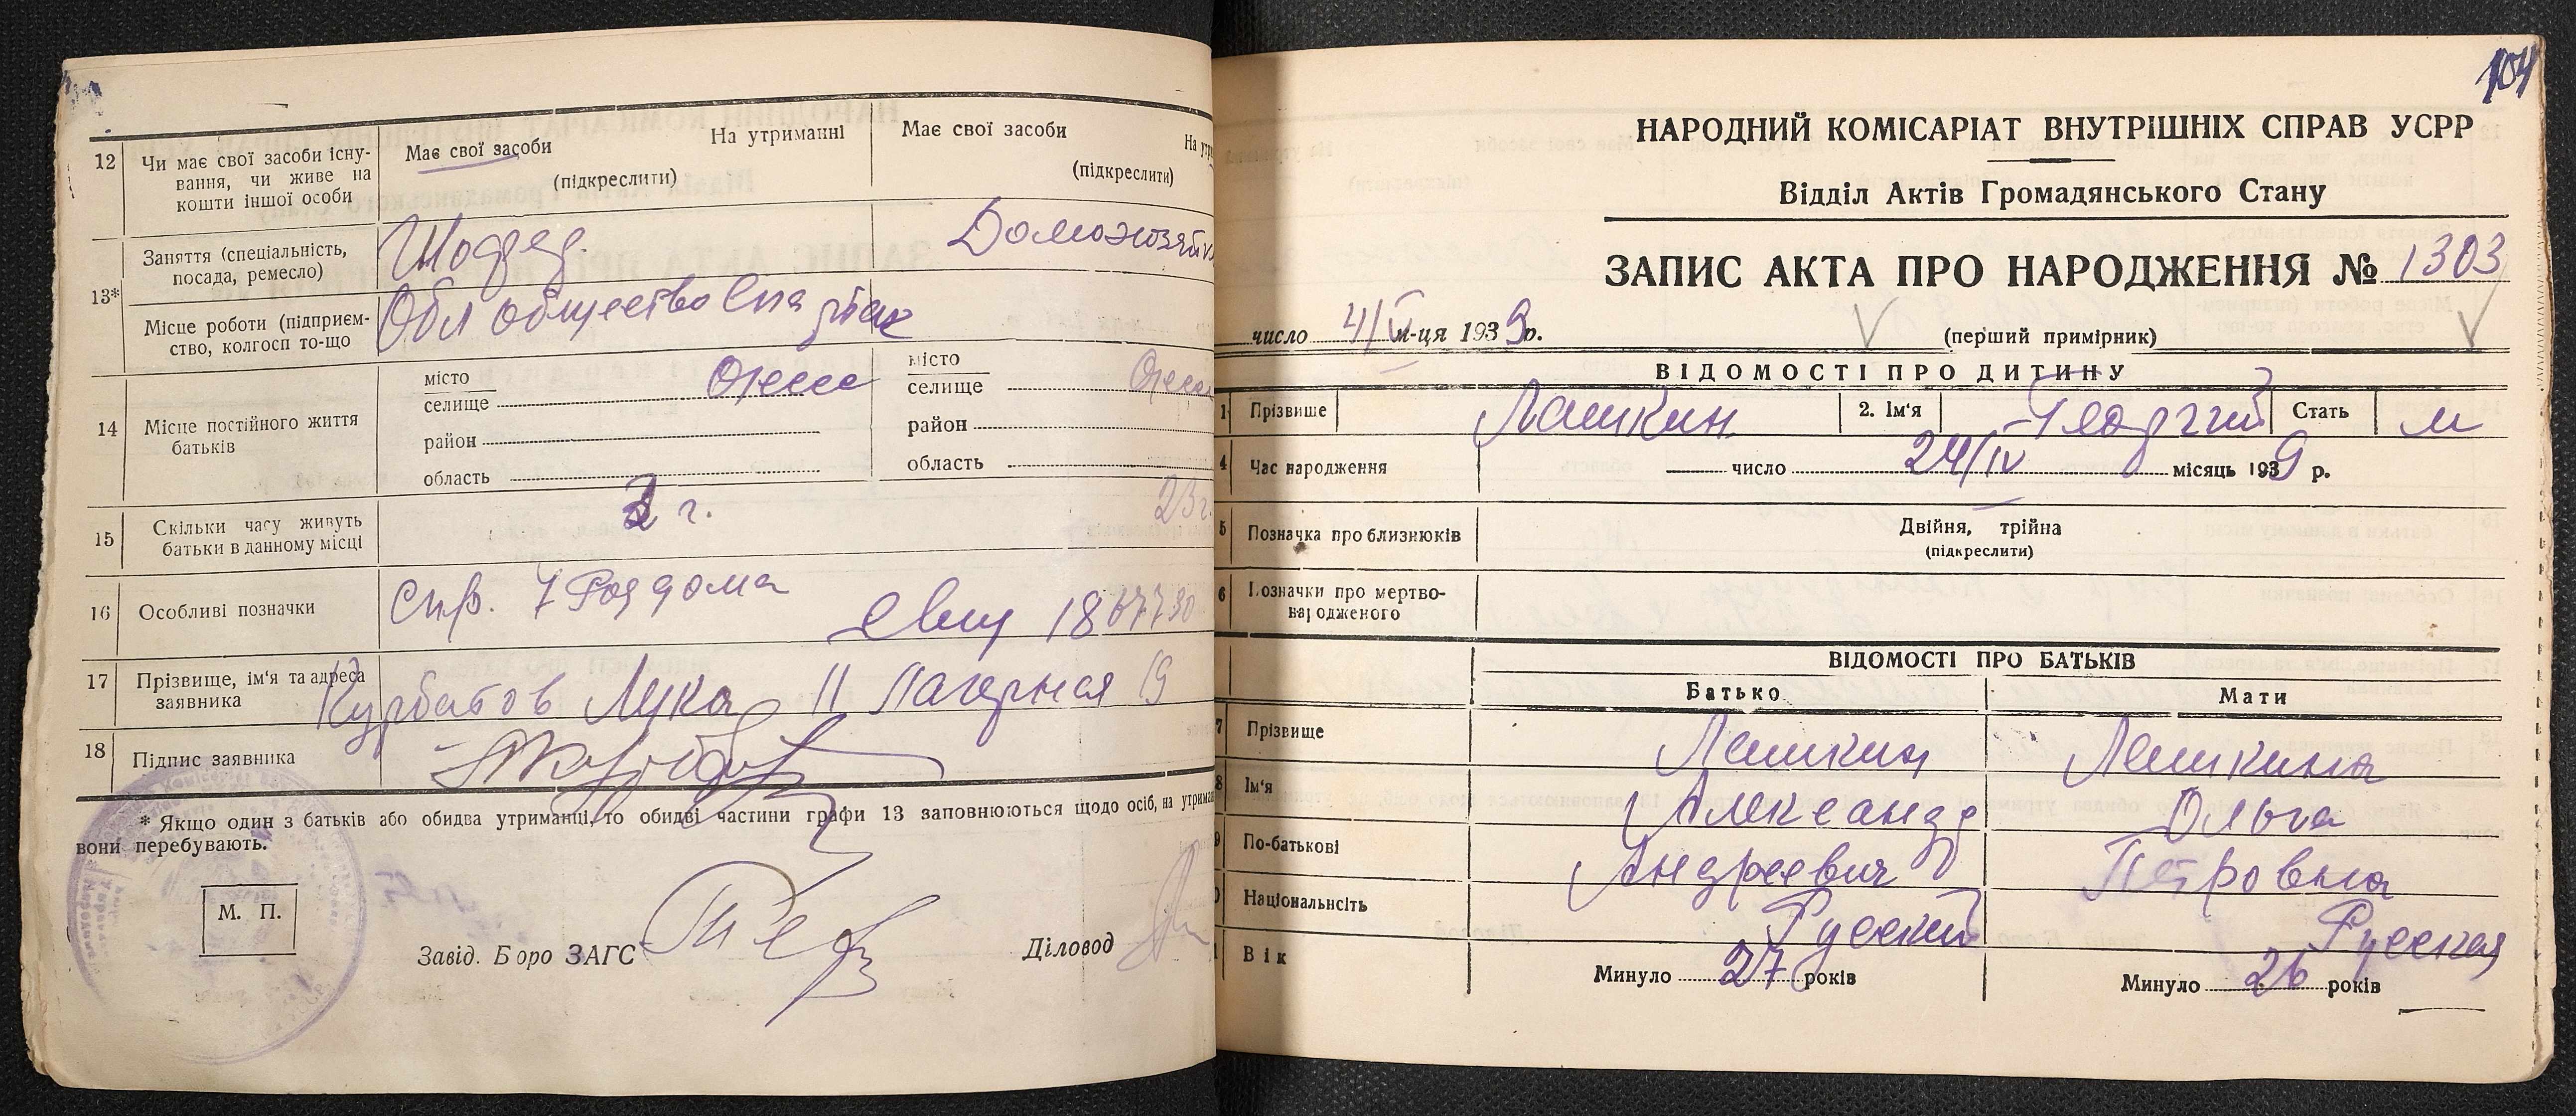 12 Чи має свої засоби існу-
вання, чи живе на
кошти іншої особи
Має свої засоби На утриманні
(підкреслити)
Має свої засоби На утри
(підкреслити)
13*
Заняття (спеціальність,
посада, ремесло)
Домохозяйк
Місце роботи (підприєм-
ство, колгосп то-що
Обл общество Спартак
14 Місце постійного життя
батьків
місто
селище Одесса
район
область
місто
селище Одесса
район
область
15 Скільки часу живуть
батьки в данному місці
г. 23 г.
16 Особливі позначки
Спр. 7 Роддома
18
17 Прізвище, ім'я та адреса
заявника
Курбатов Лука II Лагерная 19
18 Підпис заявника
* Якщо один з батьків або обидва утриманці, то обидві частини графи 13 заповнюються щодо осіб, на утриман
вони перебувають.
М. П.
Завід. Бюро ЗАГС Діловод
104
НАРОДНИЙ КОМІСАРІАТ ВНУТРІШНІХ СПРАВ УСРР
Відділ Актів Громадянського Стану
ЗАПИС АКТА ПРО НАРОДЖЕННЯ № 1303
число 4/V м-ця 1939 р.
(перший примірник)
ВІДОМОСТІ ПРО ДИТИНУ
1 Прізвище Лашкин 2. Ім'я Георгий Стать м
4 Час народження число 24/IV місяць 1939 р.
5 Позначка про близнюків
Двійня, трійна
(підкреслити)
6 Позначки про мертво-
народженого
ВІДОМОСТІ ПРО БАТЬКІВ
Батько Мати
7 Прізвище Лашкин Лашкина
8 Ім'я Александр Ольга
9 По-батькові Андреевич Петровна
0 Національнсіть Русский Русская
1 Вік Минуло 27 років Минуло 26 років